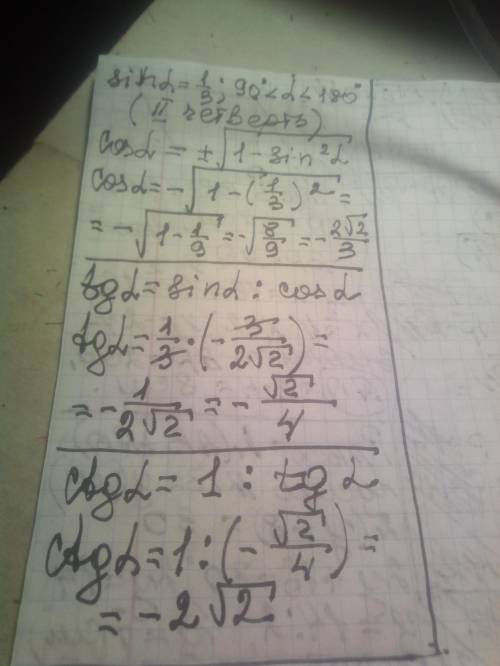 sinα = 1/3; 90° < α < 180°
(II четверть)
cosα = ±√(1 - sin²α)
cosα = -√(1 - (1/3)²) =
= -√(1 - 1/9) = -√(8/9) = -2√2/3
tgα = sinα : cosα
tgα = 1/3 · (-3/(2√2)) =
= -1/(2√2) = -√2/4
ctgα = 1 : tgα
ctgα = 1 : (-√2/4) =
= -2√2